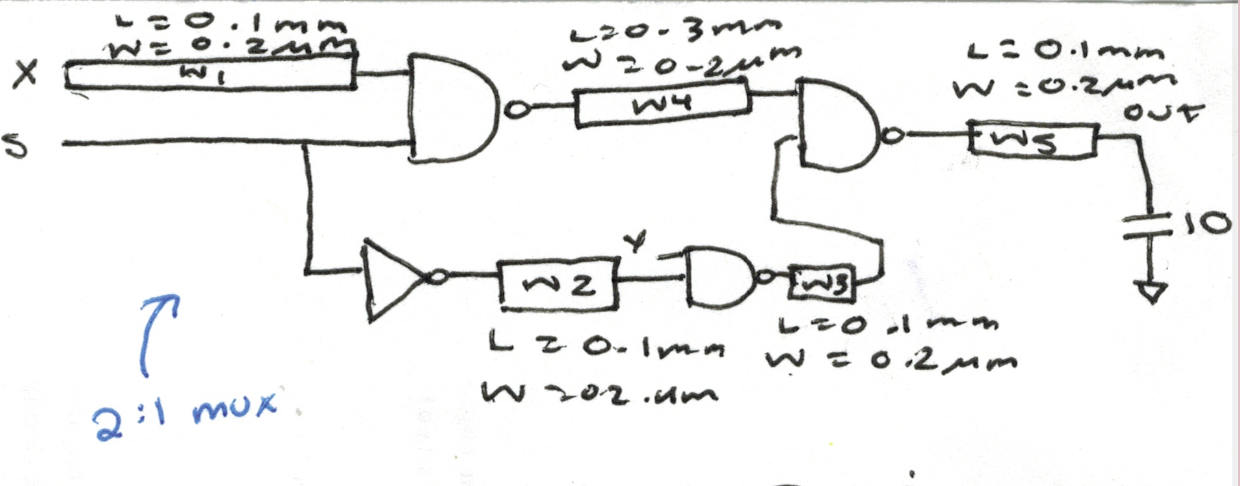 L = 0.1mm
W = 0.2μm
X
W1
S
L=0.3mm
W = 0.2μm
W4
L = 0.1mm
W = 0.2μm
OUT
W5
10
Y
W2
W3
L = 0.1mm
W = 02.μm
L = 0.1mm
W = 0.2μm
2:1 mux